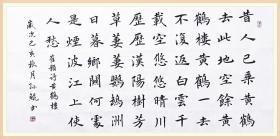 昔人已乘黄鶴
去此地空餘黄
鶴樓黄鶴一去
不復返白雲千
載空悠悠晴川
歷歷漢陽樹芳
草萋萋鸚鵡洲
日暮鄉關何處
是煙波江上使
人愁
崔顥詩黄鶴樓
歲次己亥秋月